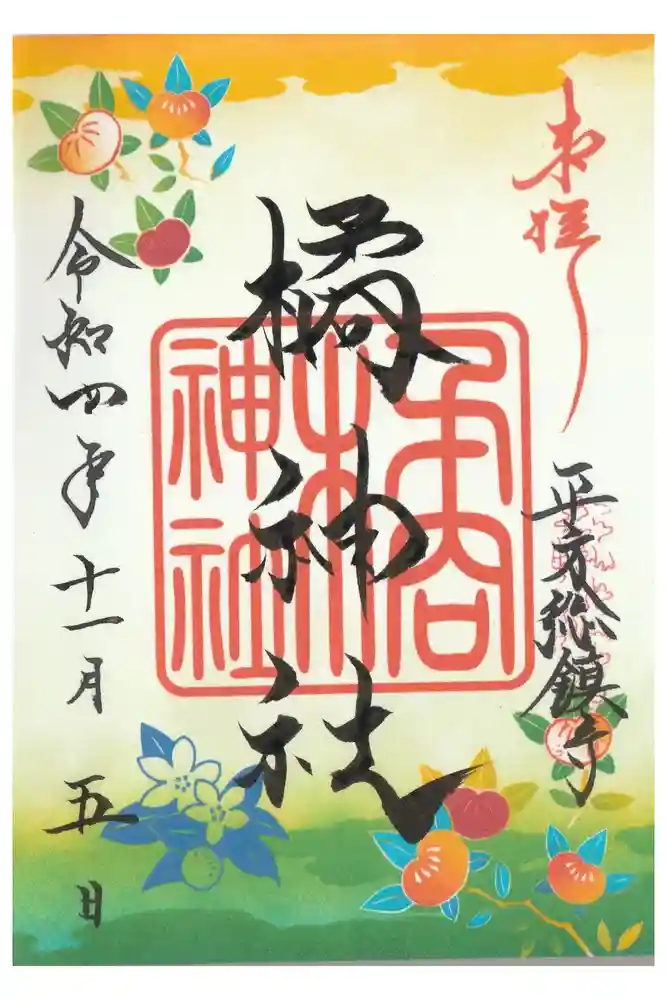 奉拝
平方総鎮守
橘神社
橘神社
令和四年十一月五日